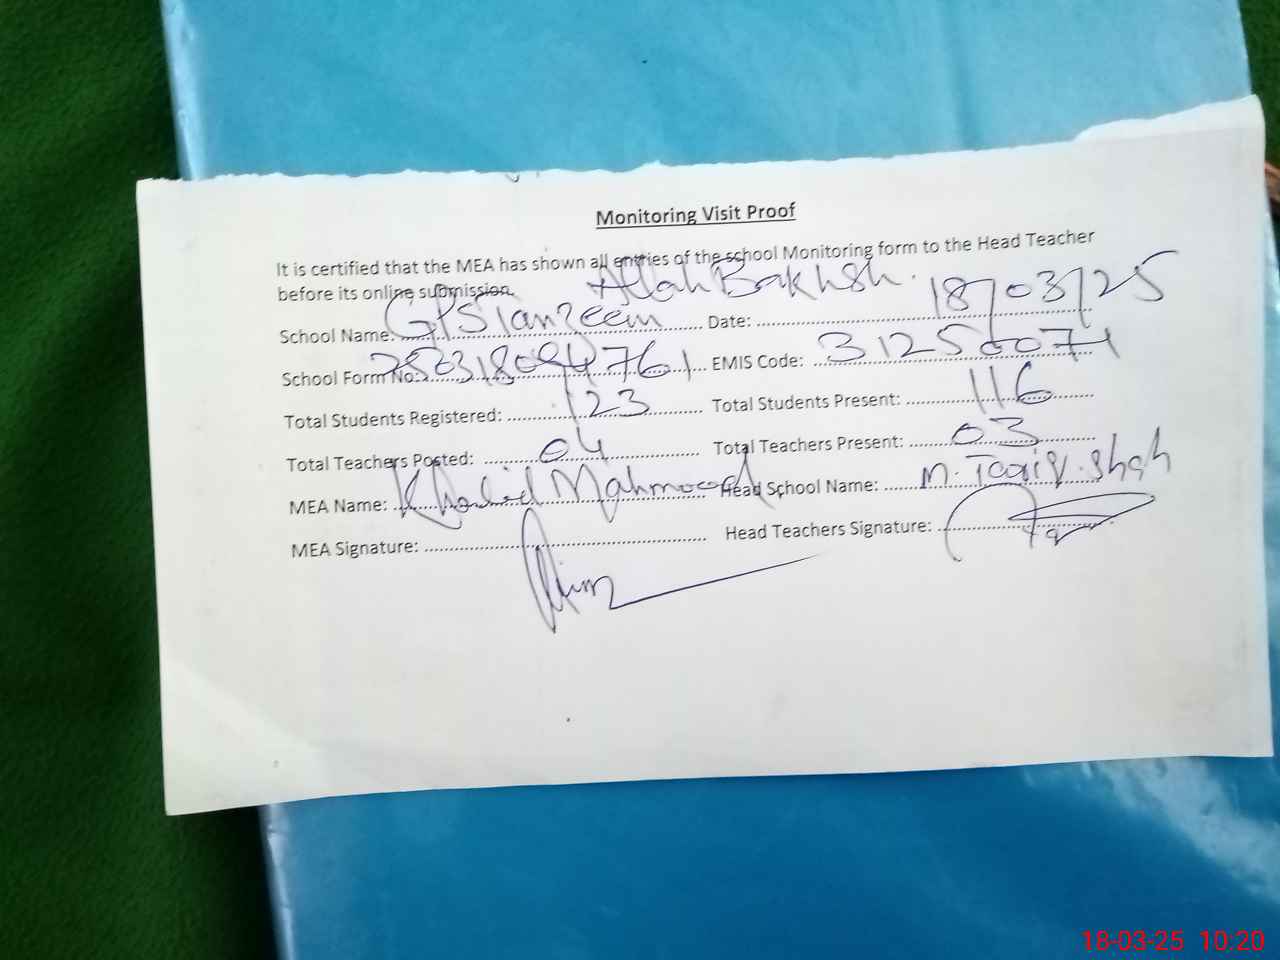 Monitoring Visit Proof
It is certified that the MEA has shown all entries of the school Monitoring form to the Head Teacher
before its online submission. Allah Bakhsh.
School Name: GPS Tanzeem Date: 18/03/25
School Form No: EMIS Code: 31250071
Total Students Registered: 123 Total Students Present: 116
Total Teachers Posted: 04 Total Teachers Present: 03
MEA Name: Khalid Mahmood Head School Name: M. Tariq Shah
MEA Signature: Head Teachers Signature:
18-03-25 10:20